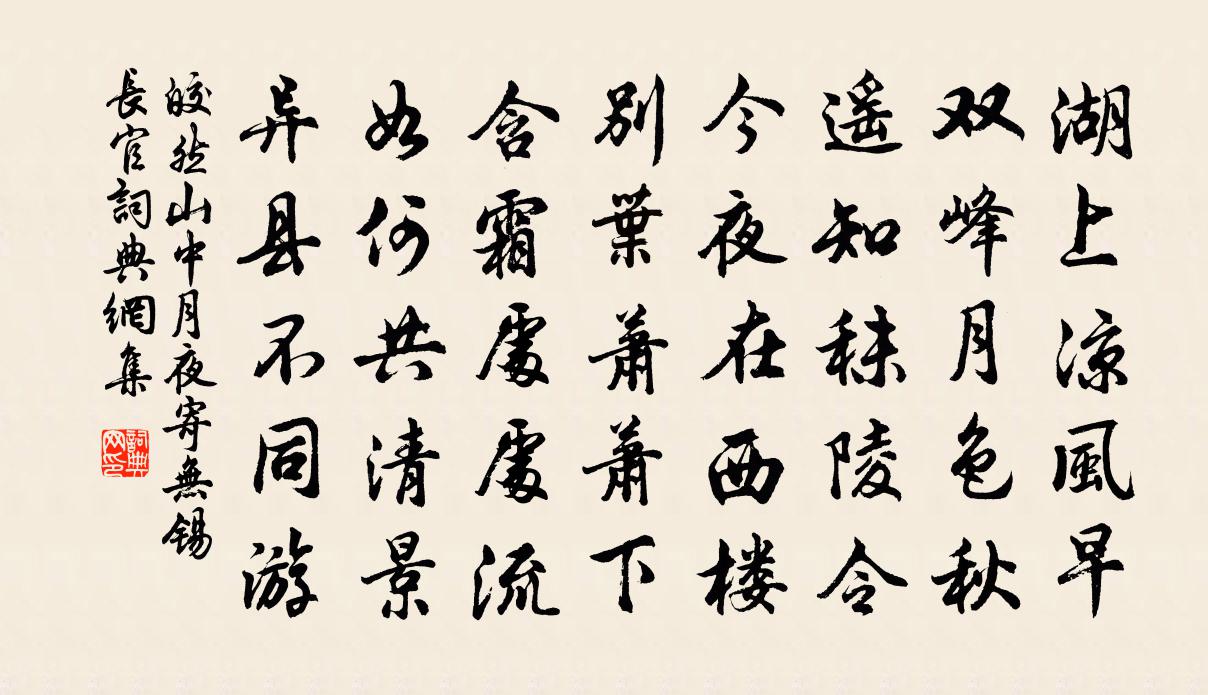 湖上涼風早
双峰月色秋
遥知秣陵令
今夜在西楼
别葉萧萧下
含霜處處流
如何共清景
异县不同游
皎然山中月夜寄無锡
長官詞典網集
詞典网印